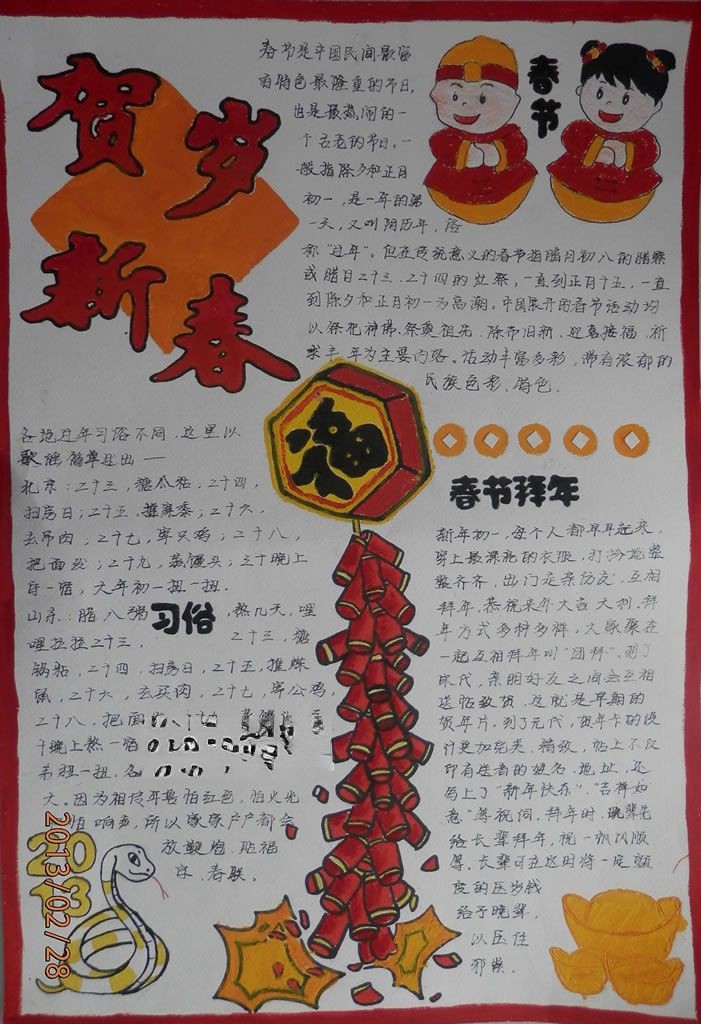 贺岁
新春
春节是中国民间最富
有特色最隆重的节日,
也是最热闹的一
个古老的节日。一
般指除夕和正月
初一,是一年的第
一天,又叫阴历年,俗
称“过年”。但在传统意义的春节指腊月初八的腊祭
或腊月二十三、二十四的灶祭,一直到正月十五,一直
到除夕和正月初一为高潮。中国展开的春节活动均
以祭祀神佛、祭奠祖先、除而旧新、迎喜接福、祈
求丰年为主要内容。活动丰富多彩,带有浓郁的
民族色彩、特色.
春节
福
各地过年习俗不同,这里以
歌谣简单
北京:二十三,糖瓜粘;二十四,
扫房日;二十五,推麻黍;二十六,
去吊肉;二十七,宰只鸡;二十八,
把面发;二十九,蒸馒头;三十晚上
年一宿,大年初一扭一扭.
山东:腊八粥,熬几天,哩
哩拉拉二十三. 二十三,糖
锅粘,二十四,扫房日,二十五,推
二十六,去买肉,二十七,宰公鸡,
二十八,把面
十晚上熬一宿
扭一扭,
大。因为相传年兽怕红色,怕火光
怕响声,所以家家户户都会
放鞭炮、贴福
字、春联。
习俗
春节拜年
新年初一,每个人都早早起来,
穿上最漂亮的衣服,打扮地整
整齐齐,出门走亲访友,互相
拜年,恭祝来年大吉大利,拜
年方式多种多样,大家聚在
一起互相拜年叫“团拜”。到了
宋代,亲朋好友之间会互相
送帖致贺,这就是早期的
贺年片。到了元代,贺年卡的设
计更加完美、精致,帖上不仅
印有送者的姓名、地址,还
写上了“新年快乐”、“吉祥如
意”等祝词,拜年时,晚辈先
给长辈拜年,祝一帆风顺
等,长辈可在这时将一定额
度的压岁钱
给予晚辈,
以压住
邪祟.
2013
2013/02/28